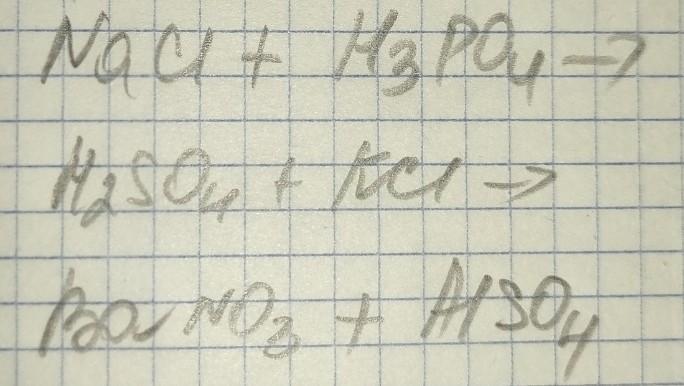 NaCl + H3PO4 →
H2SO4 + KCl →
Ba NO3 + AlSO4